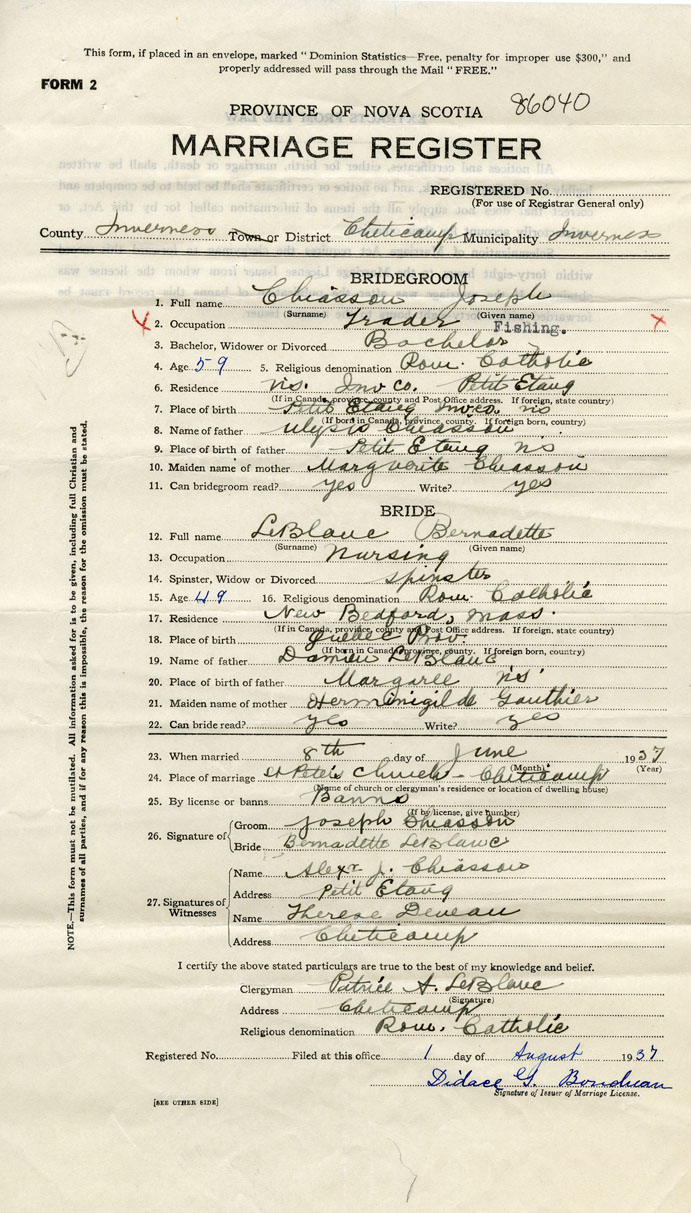 This form, if placed in an envelope, marked "Dominion Statistics—Free, penalty for improper use $300," and
properly addressed will pass through the Mail "FREE."
FORM 2
86040
PROVINCE OF NOVA SCOTIA
MARRIAGE REGISTER
REGISTERED No.
(For use of Registrar General only)
County Inverness Town or District Cheticamp Municipality Inverness
BRIDEGROOM
1. Full name Chiasson Joseph
(Surname) (Given name)
2. Occupation Trader Fishing.
3. Bachelor, Widower or Divorced Bachelor
4. Age 59 5. Religious denomination Rom. Catholic
6. Residence N.S. Inv Co. Petit Etang
(If in Canada, province, county and Post Office address. If foreign, state country)
7. Place of birth Petit Etang Inv.co. N S
(If born in Canada, province, county. If foreign born, country)
8. Name of father Chiasson
9. Place of birth of father Petit Etang N S
10. Maiden name of mother Marguerite Chiasson
11. Can bridegroom read? yes Write? yes
BRIDE
12. Full name LeBlanc Bernadette
(Surname) (Given name)
13. Occupation Nursing
14. Spinster, Widow or Divorced Spinster
15. Age 49 16. Religious denomination Rom. Catholic
17. Residence New Bedford, Mass.
(If in Canada, province, county and Post Office address. If foreign, state country)
18. Place of birth Quebec Prov.
(If born in Canada, province, county. If foreign born, country)
19. Name of father Damien LeBlanc
20. Place of birth of father Margaree N S
21. Maiden name of mother Gauthier
22. Can bride read? yes Write? yes
23. When married 8th day of June 1937
(Month) (Year)
24. Place of marriage St Peter's Church - Cheticamp
(Name of church or clergyman's residence or location of dwelling house)
25. By license or banns Banns
(If by license, give number)
26. Signature of Groom Joseph Chiasson
Bride Bernadette LeBlanc
27. Signatures of Witnesses
Name Alexr J. Chiasson
Address Petit Etang
Name Therese Deveau
Address Cheticamp
I certify the above stated particulars are true to the best of my knowledge and belief.
Clergyman Patrice A. LeBlanc
(Signature)
Address Cheticamp
Religious denomination Rom. Catholic
Registered No. Filed at this office 1 day of August 1937
Didace G.
Signature of Issuer of Marriage License.
[SEE OTHER SIDE]
NOTE.—This form must not be mutilated. All information asked for is to be given, including full Christian and
surnames of all parties, and if for any reason this is impossible, the reason for the omission must be stated.